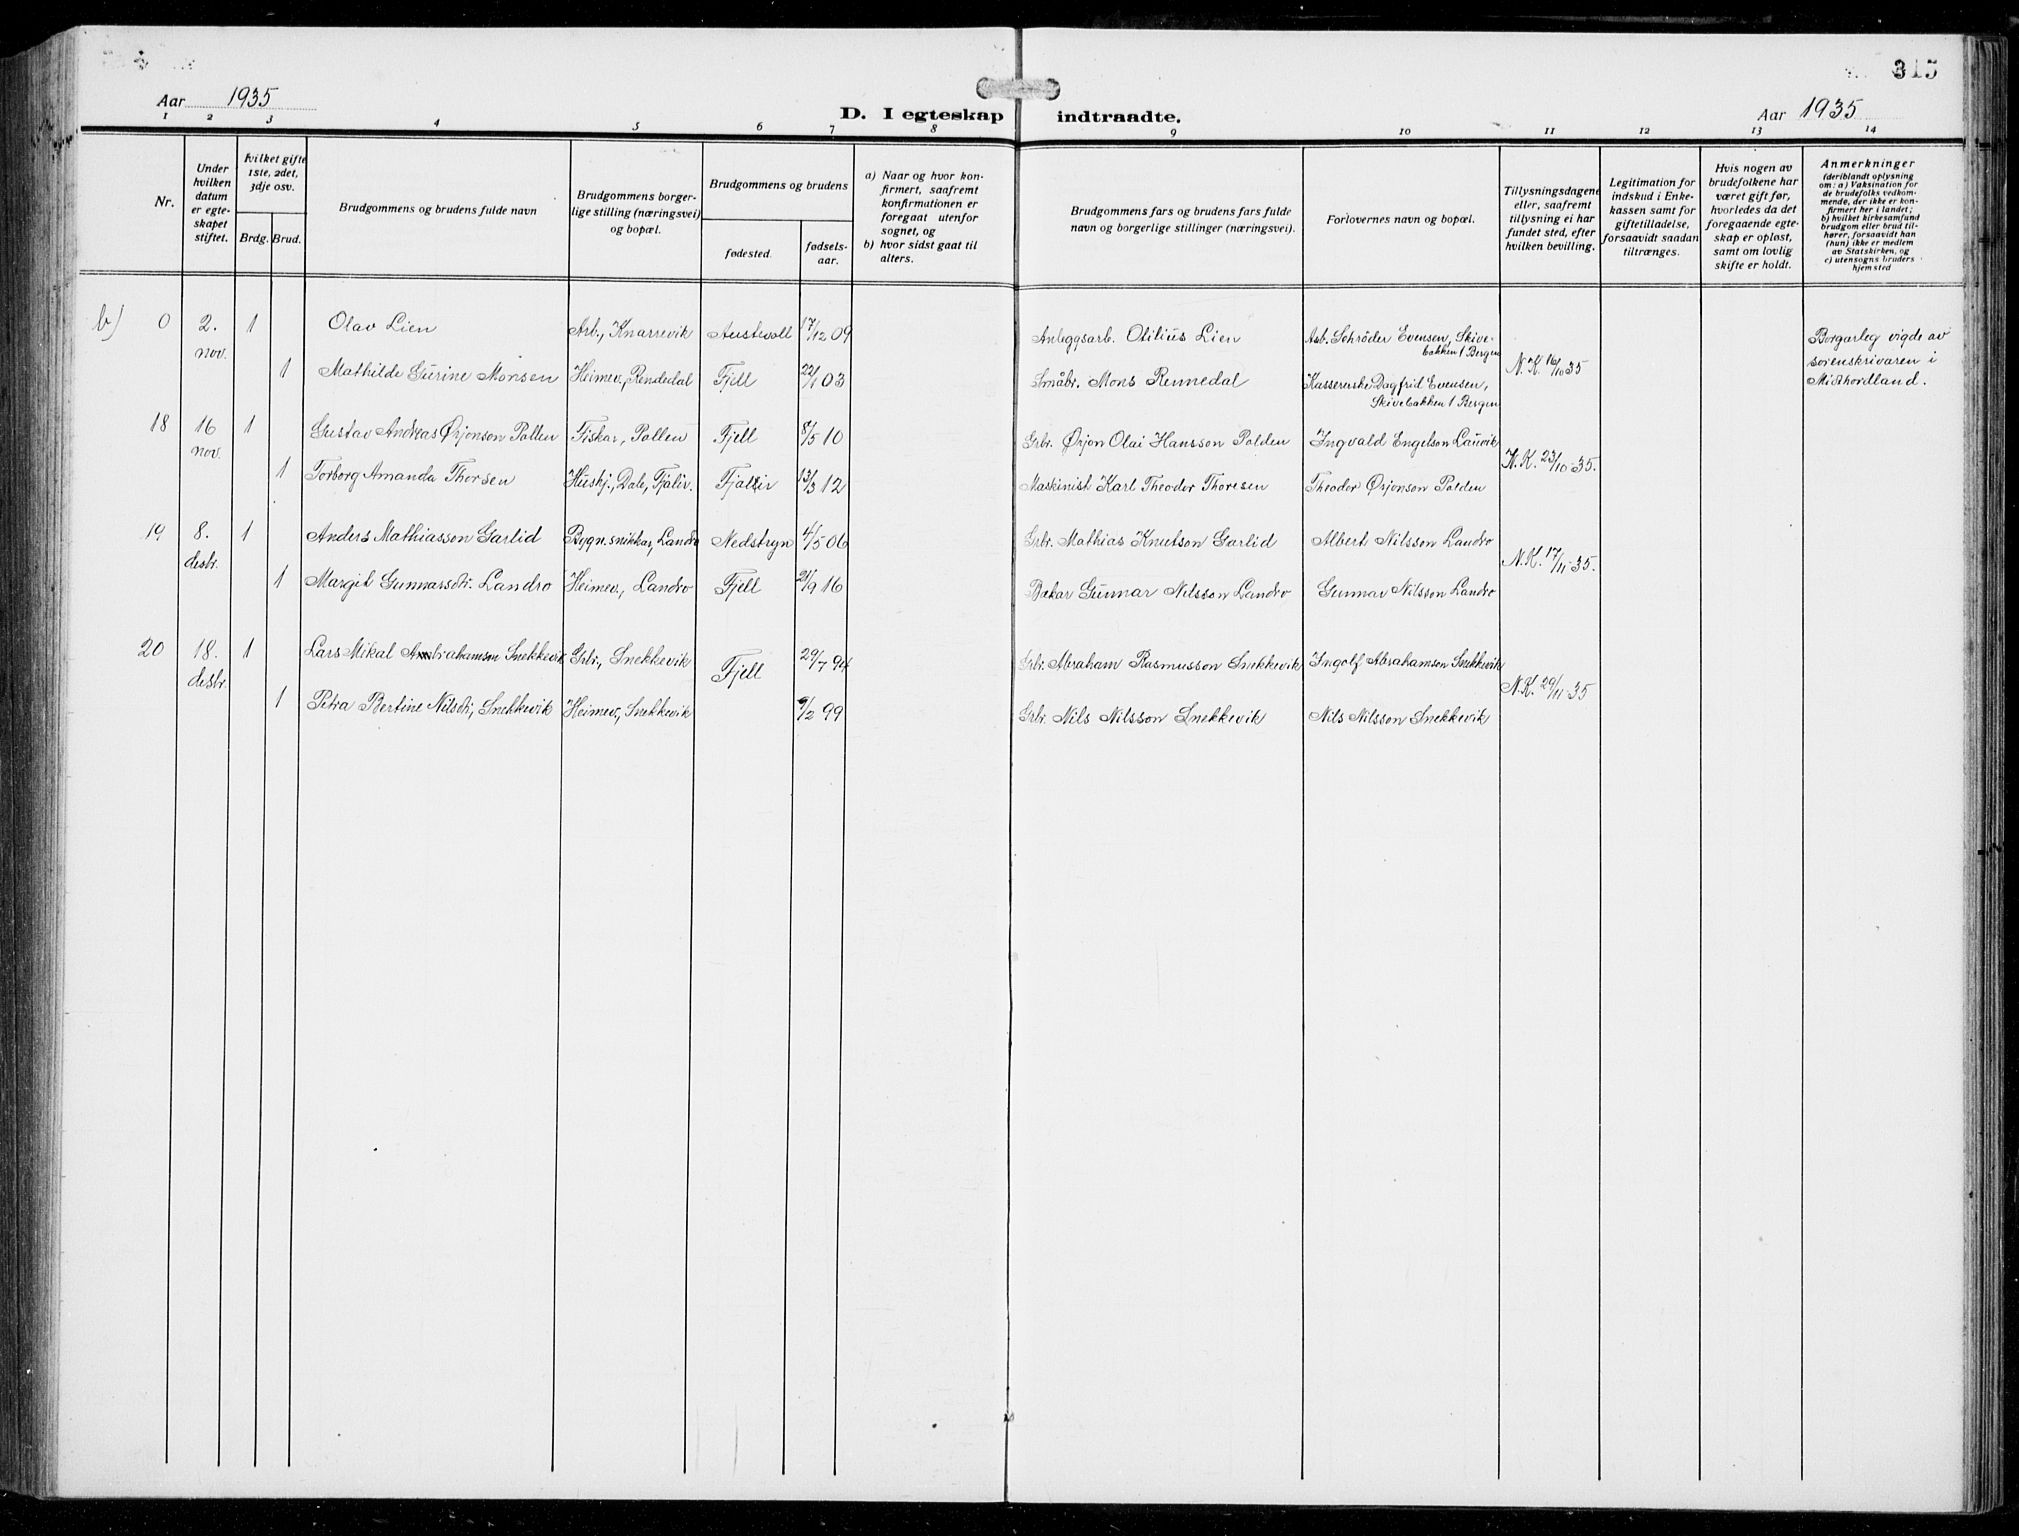 315
Aar 1935
D. I egteskap indtraadte.
Aar 1935
1 2 3 4 5 6 7 8 9 10 11 12 13 14
Nr.
Under hvilken datum er egte-skapet stiftet.
hvilket gifte 1ste, 2det, 3dje osv.
Brdg. Brud.
Brudgommens og brudens fulde navn
Brudgommens borger-lige stilling (næringsvei) og bopæl.
Brudgommens og brudens
fødested.
fødsels-aar.
a) Naar og hvor kon-firmert, saafremt konfirmationen er foregaat utenfor sognet, og
b) hvor sidst gaat til alters.
Brudgommens fars og brudens fars fulde navn og borgerlige stillinger (næringsvei).
Forlovernes navn og bopæl.
Tillysningsdagene eller, saafremt tillysning ei har fundet sted, efter hvilken bevilling.
Legitimation for indskud i Enke-kassen samt for giftetilladelse, forsaavidt saadan tiltrænges.
Hvis nogen av brudefolkene har været gift før, hvorledes da det foregaaende egte-skap er opløst, samt om lovlig skifte er holdt.
Anmerkninger (deriblandt oplysning om: a) Vaksination for de brudefolks vedkom-mende, der ikke er kon-firmert her i landet; b) hvilket kirkesamfund brudgom eller brud til-hører, forsaavidt han (hun) ikke er medlem av Statskirken, og c) utensogns bruders hjemsted
b) 0 2. nov. 1 Olav Lien Arb., Knarrevik Austevoll 17/12 09 Anleggsarb. Otilius Lien Arb. Schrøder Evensen, Skive-bakken 1 Bergen N.K. 16/10 35 Borgarleg vigde av sorenskrivaren i Midthordland.
1 Mathilde Gurine Monsen Heimev., Rendedal Fjell 22/1 03 Småbr. Mons Rennedal Kassererske Dagfrid Evensen, Skivebakken 1 Bergen
18 16 nov. 1 Gustav Andreas Ørjonson Pollen Fiskar, Pollen Fjell 8/5 10 Grbr. Ørjon Olai Hansson Polden Ingvald Engelson Lauvik N.K. 23/10 35.
1 Torborg Amanda Thorsen Huskj., Dale, Fjaliv. Fjallir 13/3 12 Maskinist Karl Theodor Thoresen Theodor Ørjonson Polden
19 8. desbr. 1 Anders Mathiasson Garlid Bygn.snikkar, Landro Nedstryn 4/5 06 Grbr. Mathias Knutson Garlid Albert Nilsson Landro N.K. 17/11 35.
1 Margit Gunnarsdtr. Landro Heimev., Landro Fjell 21/9 16 Bakar Gunnar Nilsson Landro Gunnar Nilsson Landro
20 18. desbr. 1 Lars Mikal Abrahamson Snekkevik Grbr., Snekkevik Fjell 29/7 94 Grbr. Abraham Rasmusson Snekkevik Ingolf Abrahamson Snekkevik N.K. 29/11 35
1 Petra Bertine Nilsdtr, Snekkevik Heimev, Snekkevik 9/2 99 Grbr. Nils Nilsson Snekkevik Nils Nilsson Snekkevik